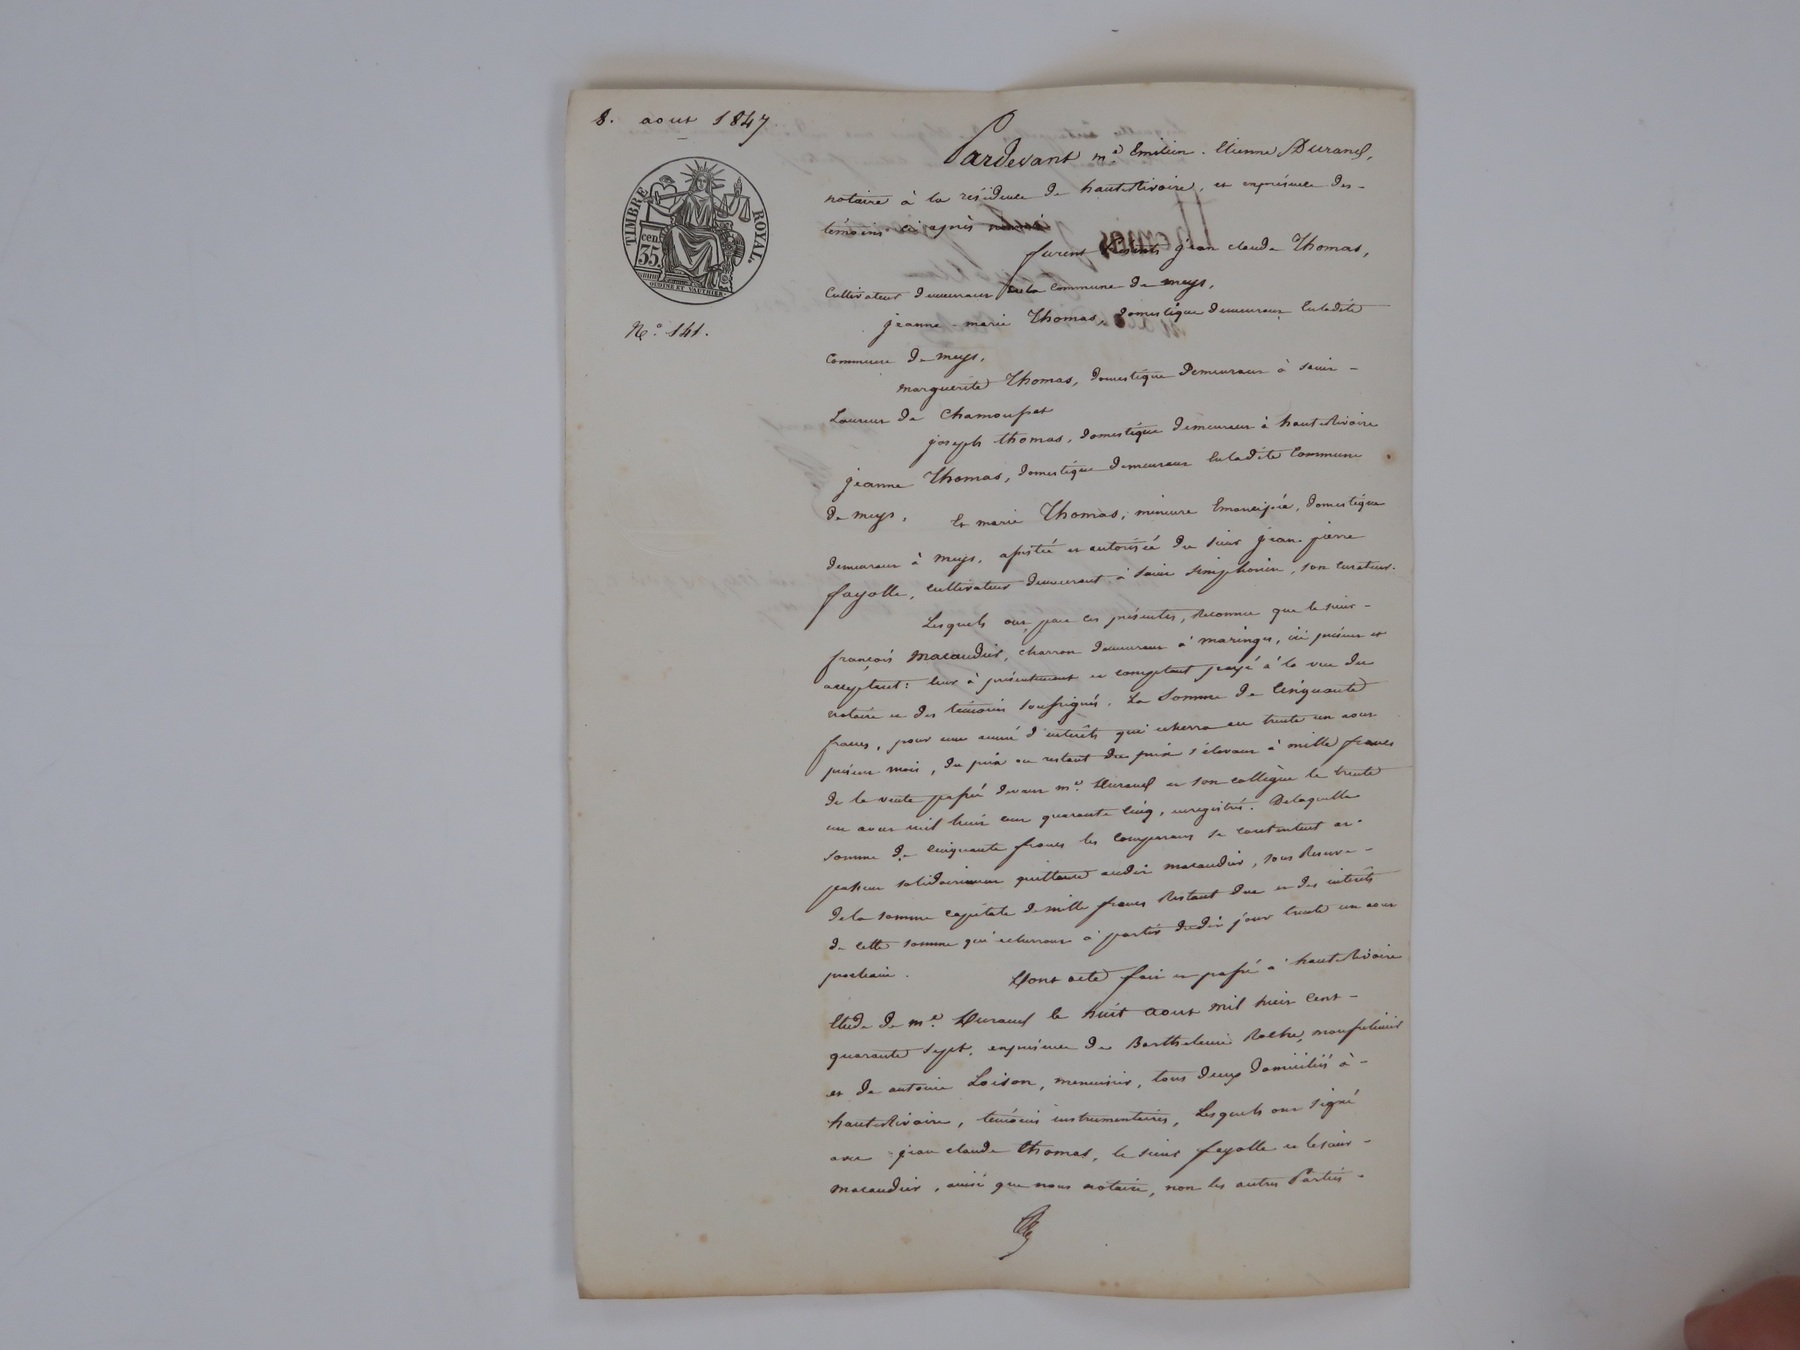 8. aout 1847
TIMBRE ROYAL.
cen. 35.
OUDINÉ ET VAUTHIER.
N.o 141.
Pardevant m.e Emilien. Etienne Durand,
notaire à la résidence de hauterivoire, et enprésence des-
témoins ci après
furent présents jean claude Thomas,
Cultivateur demeurant en la Commune de meys,
jeanne-marie Thomas, domestique demeurant En ladite
Commune de meys,
marguerite Thomas, domestique Demeurant à saint-
Laurent de Chamousset
joseph thomas, domestique demeurant à hauterivoire
jeanne Thomas, domestique demeurant En ladite Commune
de meys, Et marie Thomas, mineure Emancipée, domestique
demeurant à meys, assistée et autorisée du sieur jean pierre
fayolle, cultivateur demeurant à saint simphorien, son curateur.
Lesquels ont, par ces présentes, Reconnu que le sieur-
françois Macaudier, charron demeurant à maringes, ici présent et
acceptant: leur à présentement et comptant payé à la vue du
notaire et des témoins soussignés, La Somme de Cinquante
francs, pour une année d'intérêts qui écherra au trente un aout
présent mois, du prix ou restant du prix s'élevant à mille francs
de la vente passée devant m.e Durand et son collègue le trente
un aout mil huit cent quarante cinq, enregistrée. De laquelle
somme de cinquante francs les comparans se contentent et
passent solidairement quittance audit macaudier, sous Reserve-
de la somme capitale de mille francs Restant due et des intérêts
de cette somme qui écherront à partir dudit jour trente un aout
prochain. Dont acte fait et passé à hauterivoire
Etude de m.e Durand le huit aout mil huit cent-
quarante sept, enprésence de Barthelemi
et de antoine Loison, menuisier, tous deux domiciliés à-
hauterivoire, témoins instrumentaires, Lesquels ont signé
avec jean claude Thomas, le sieur fayolle et le sieur-
macaudier, ainsi que nous notaire, non les autres Parties-